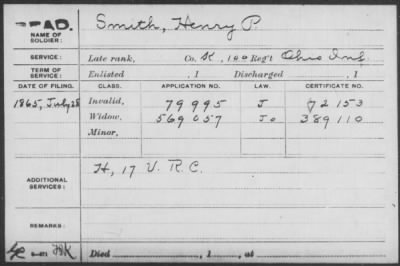 DEAD.
NAME OF SOLDIER: Smith, Henry P.
SERVICE: Late rank, Co. K, 100 Reg't Ohio Inf.
TERM OF SERVICE: Enlisted , 1 Discharged , 1
DATE OF FILING. CLASS. APPLICATION NO. LAW. CERTIFICATE NO.
1865, July 28 Invalid, 79995 J 72153
Widow, 569057 Jo 389110
Minor,
ADDITIONAL SERVICES: H, 17 V. R. C.
REMARKS:
Died , 1 , at